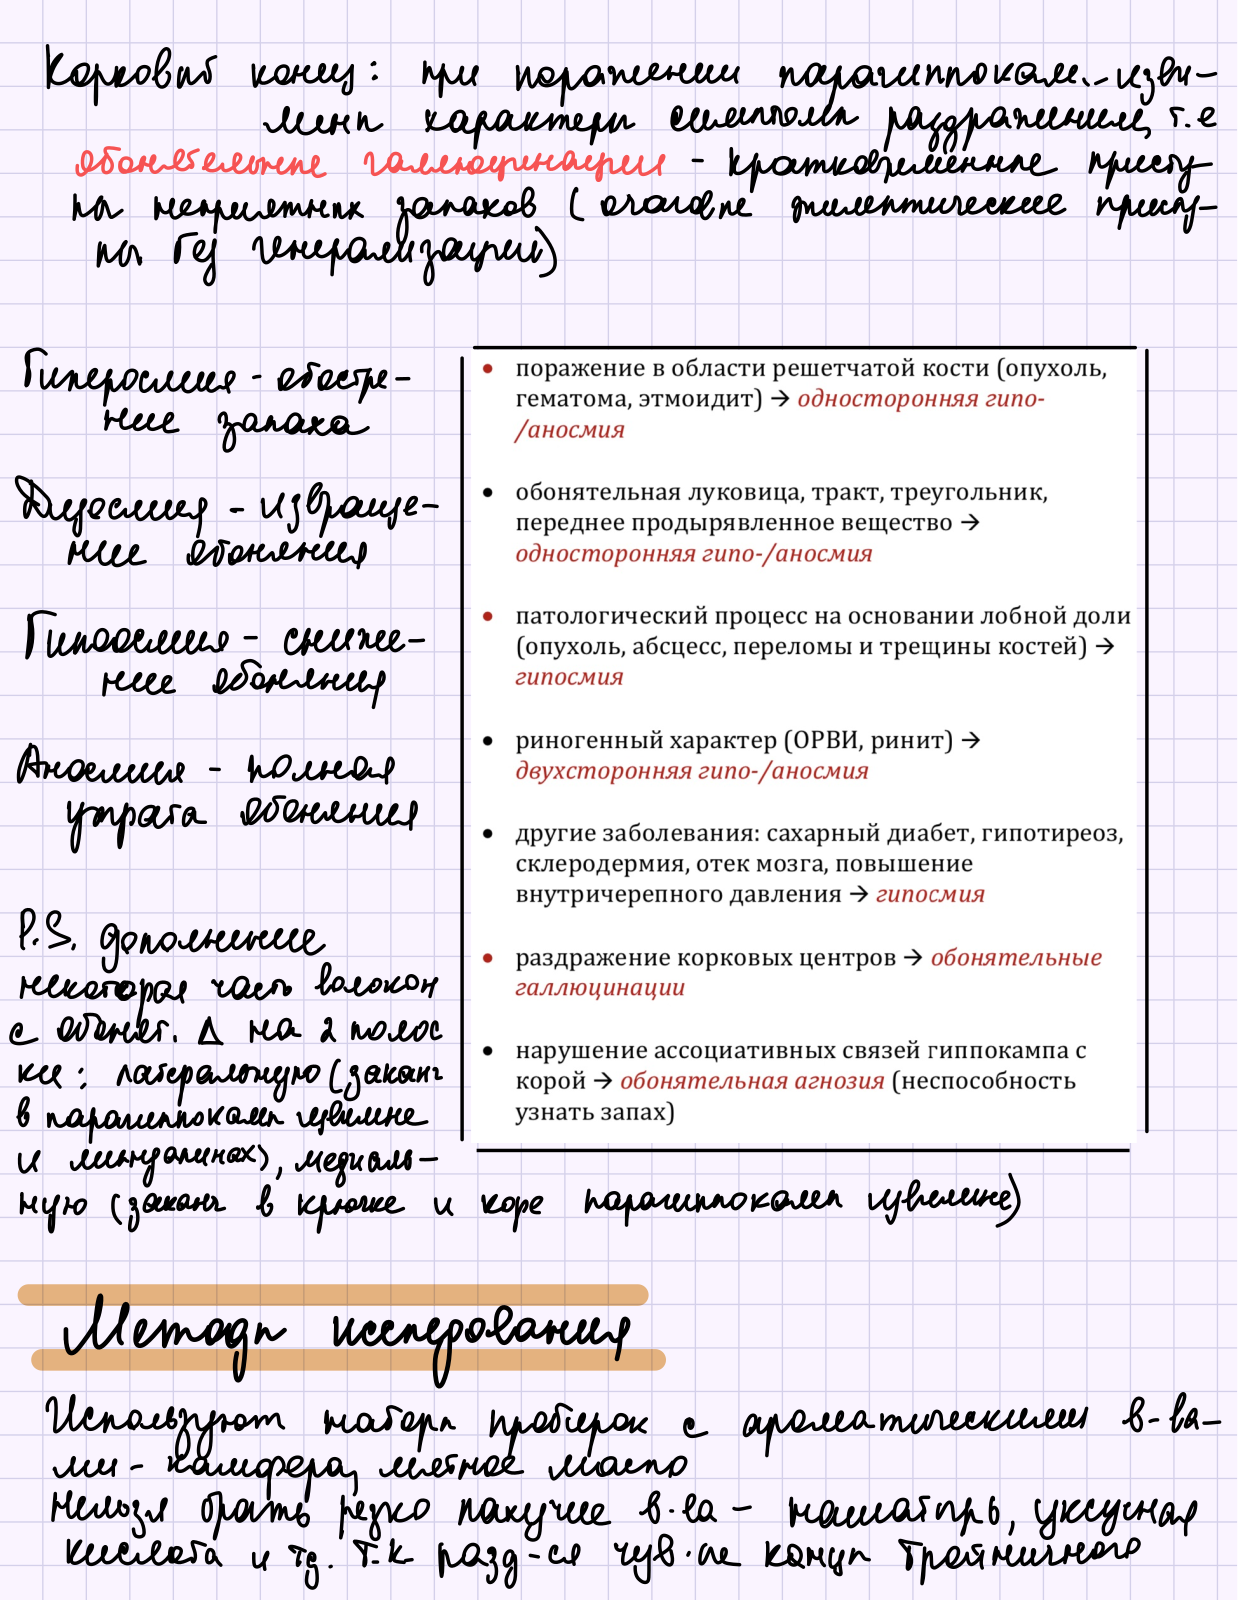 Корковый конец: при поражении парагиппокам. изви-
лины характерн симптомы раздражения, т.е
обонятельные галлюцинации - кратковременные присту-
пы неприятных запахов (очаговые эпилептические присту-
пы без генерализации)
Гиперосмия - обостре-
ние запаха
Дизосмия - извраще-
ние обоняния
Гипоосмия - сниже-
ние обоняния
Аносмия - полная
утрата обоняния
P.S. дополнение
некоторая часть волокон
с обонят. Δ на 2 полос
ки: латеральную (заканч
в парагиппокамп извилине
и миндалинах), медиаль-
ную (заканч в крючке и коре парагиппокамп извилине)
• поражение в области решетчатой кости (опухоль,
гематома, этмоидит) → односторонняя гипо-
/аносмия
• обонятельная луковица, тракт, треугольник,
переднее продырявленное вещество →
односторонняя гипо-/аносмия
• патологический процесс на основании лобной доли
(опухоль, абсцесс, переломы и трещины костей) →
гипосмия
• риногенный характер (ОРВИ, ринит) →
двухсторонняя гипо-/аносмия
• другие заболевания: сахарный диабет, гипотиреоз,
склеродермия, отек мозга, повышение
внутричерепного давления → гипосмия
• раздражение корковых центров → обонятельные
галлюцинации
• нарушение ассоциативных связей гиппокампа с
корой → обонятельная агнозия (неспособность
узнать запах)
Методы исследования
Используют наборы пробирок с ароматическими в-ва-
ми - камфера, мятное масло
нельзя брать резко пахучие в-ва - нашатырь, уксусная
кислота и тд. т.к разд-ся чув-ые концы тройничного